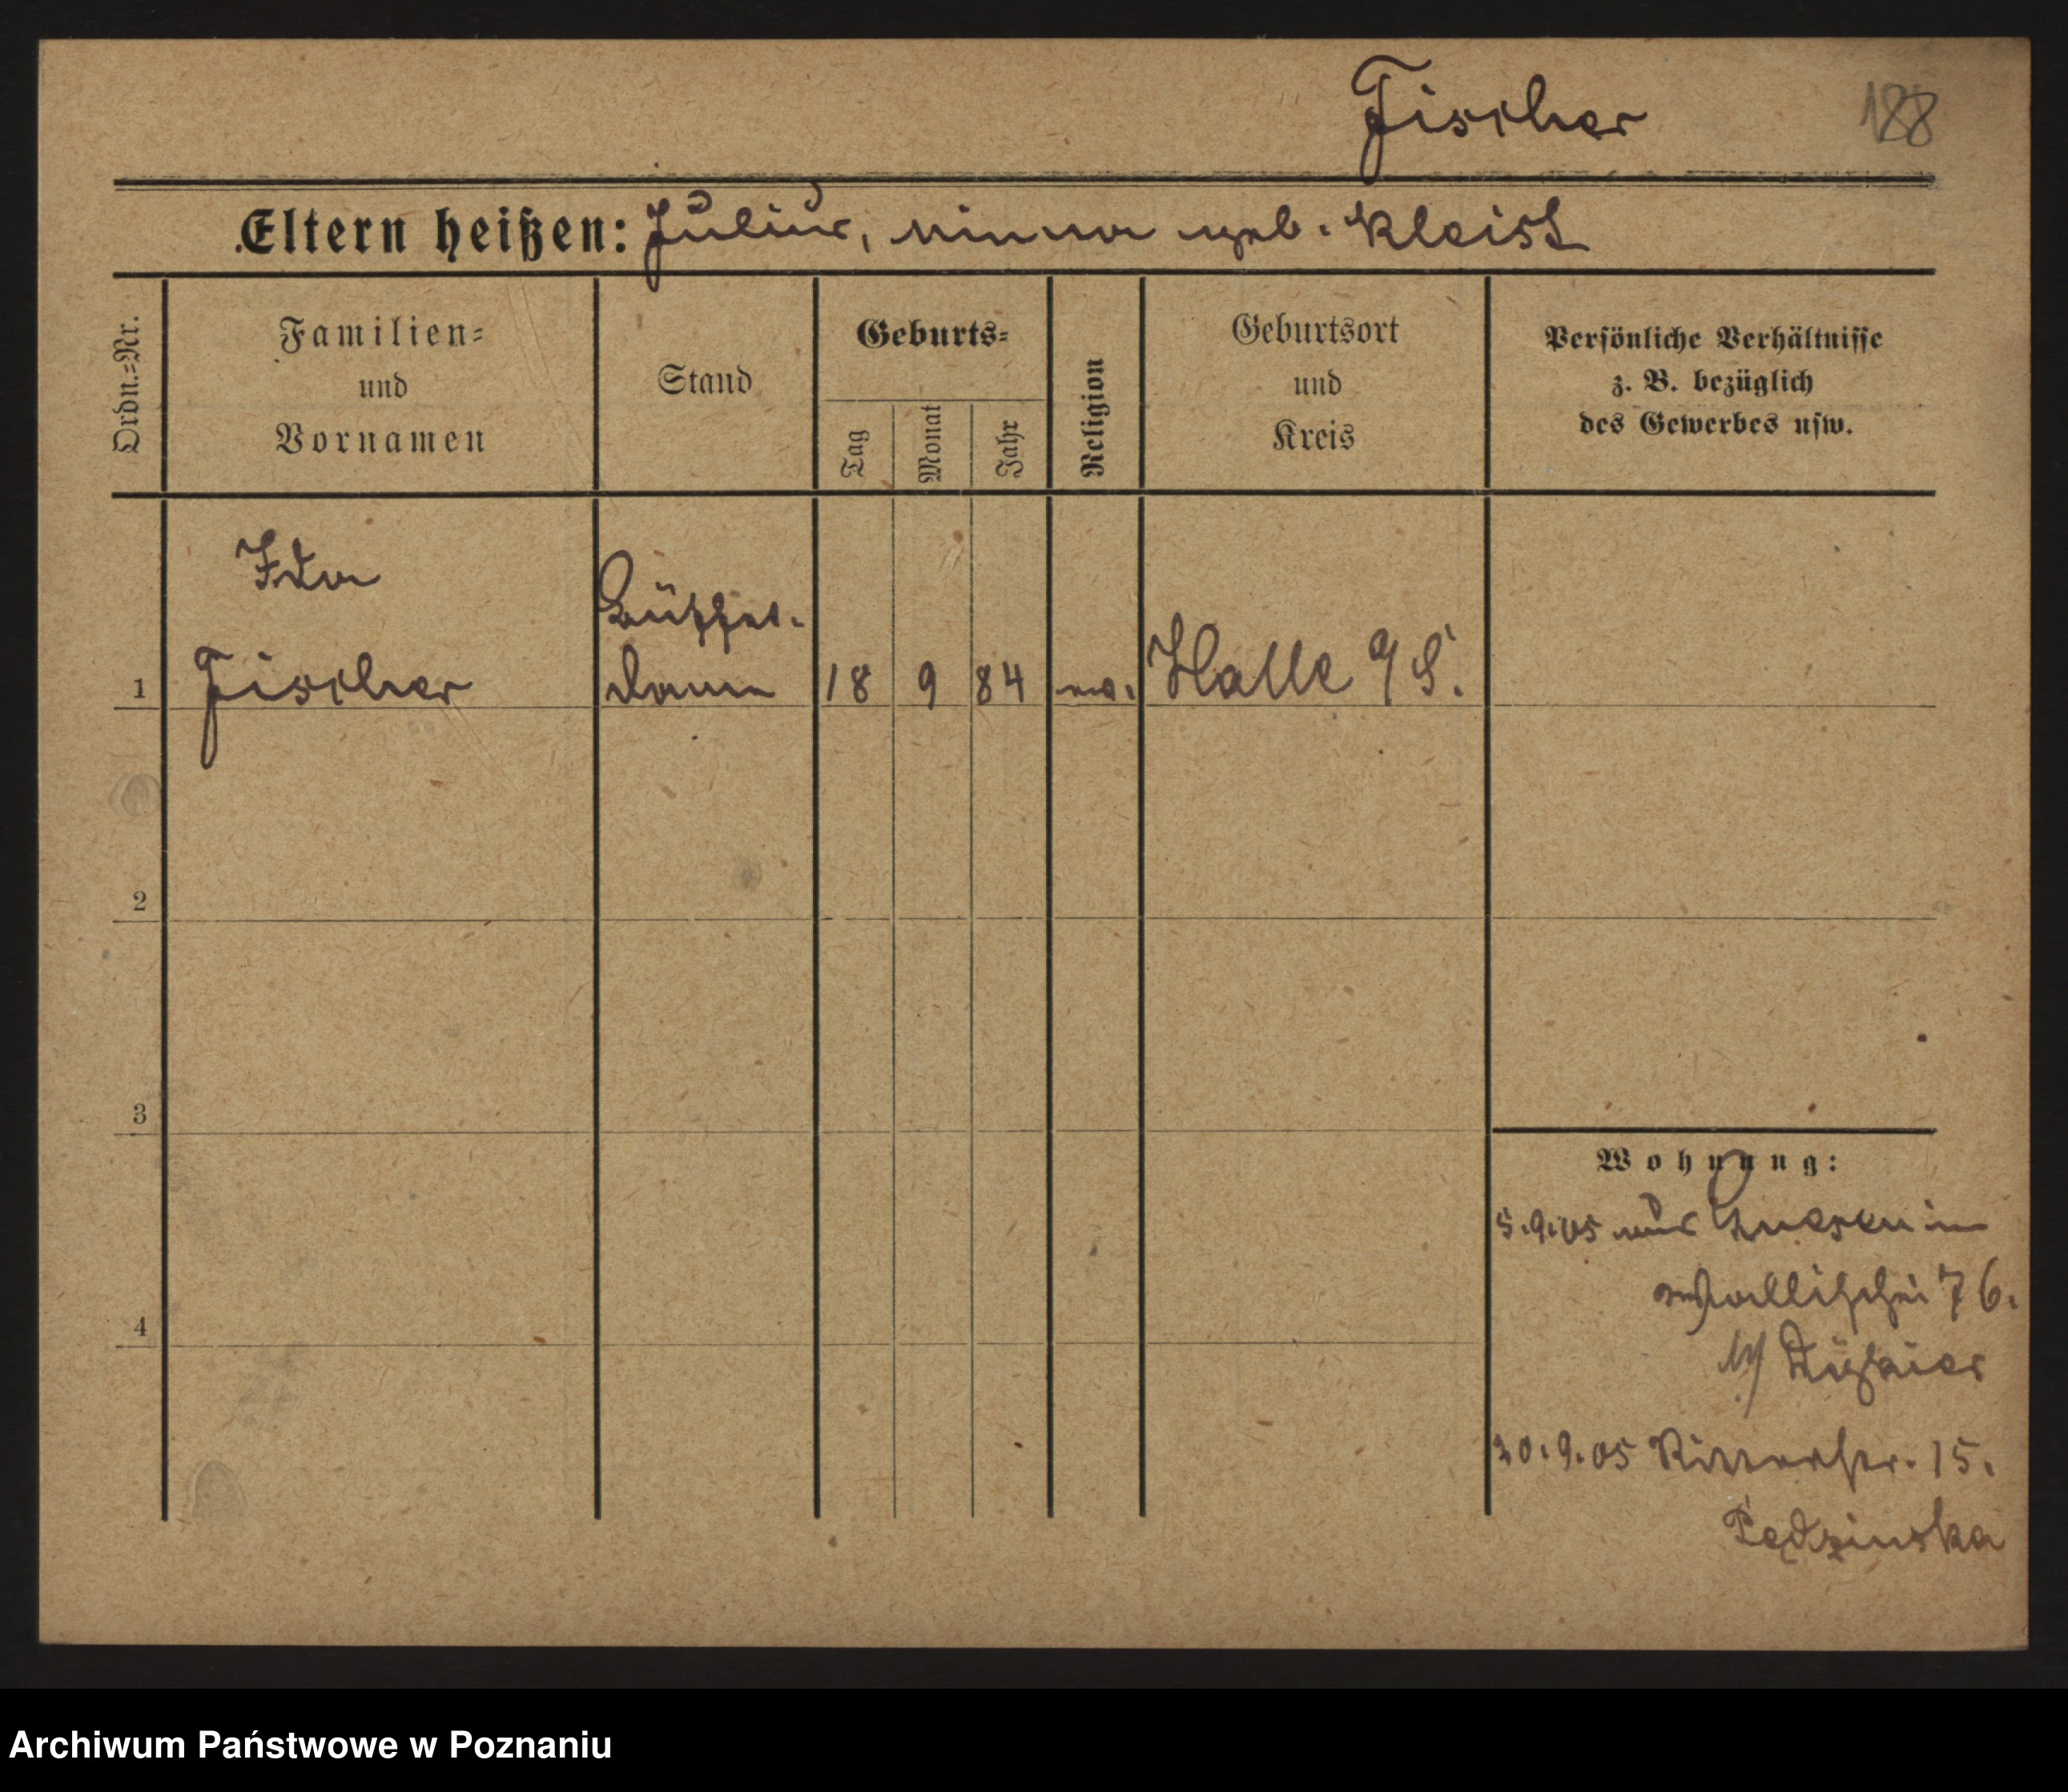 Fischer 188
Eltern heißen: Julius, Minna geb. Kleist
Ordn.-Nr.
Familien-
und
Vornamen
Stand
Geburts-
Tag
Monat
Jahr
Religion
Geburtsort
und
Kreis
Persönliche Verhältnisse
z. B. bezüglich
des Gewerbes usw.
Ida
Büffet-
1 Fischer dame 18 9 84 ev. Halle a/S.
2
3
4
Wohnung:
5.9.05 aus Gnesen in
Wallischei 76.
b/
20.9.05 Ritterstr. 15.
Pędzinska
Archiwum Państwowe w Poznaniu